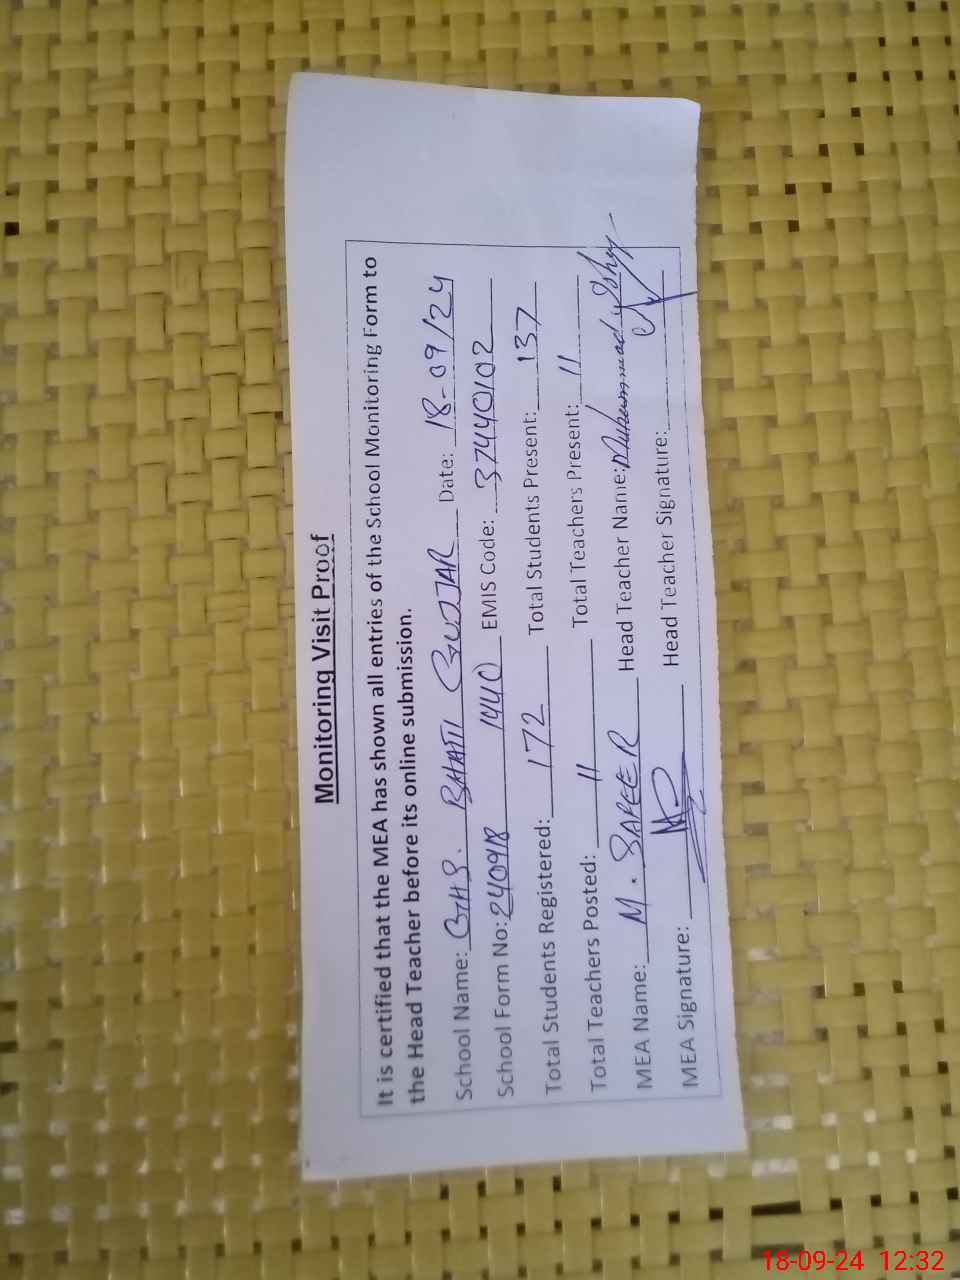 Monitoring Visit Proof
It is certified that the MEA has shown all entries of the School Monitoring Form to
the Head Teacher before its online submission.
School Name: GHS. BHATII GUJAR Date: 18-09/24
School Form No: 240918 1440 EMIS Code: 37440102
Total Students Registered: 172 Total Students Present: 137
Total Teachers Posted: 11 Total Teachers Present: 11
MEA Name: M. SAFEER Head Teacher Name: Muhammad
MEA Signature: Head Teacher Signature:
18-09-24 12:32